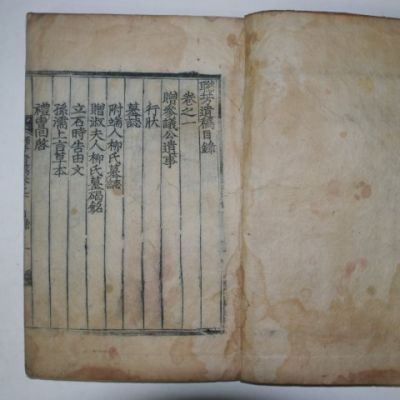 聯芳遺稿目錄
卷之一
贈參議公遺事
行狀
墓誌
附端人柳氏墓誌
贈淑夫人柳氏墓碣銘
立石時告由文
孫濡上言草本
禮曹回啓